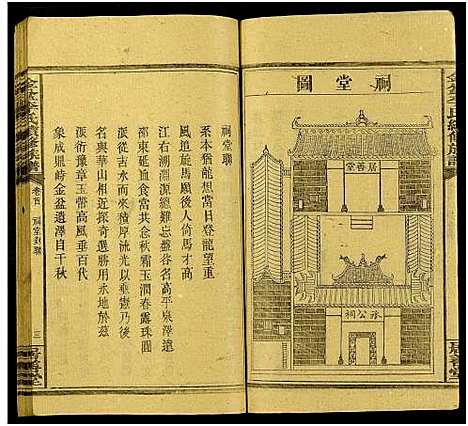 祠堂圖
居善堂
承公祠
祠堂聯
系本猶龍想當日登龍望重
風追旋馬願後人倚馬才高
江右溯淵源總難忘盤谷名高平泉澤遠
邵東延血食當共念秋霜玉潤春露珠圓
派從吉水而來積厚流光以垂憲乃後
名與華山相近探奇選勝用永地於茲
派衍豫章玉帶高風垂百代
象成鼎峙金盆遺澤自千秋
卷首
祠堂對聯
三
居善堂
金盆李氏續修族譜